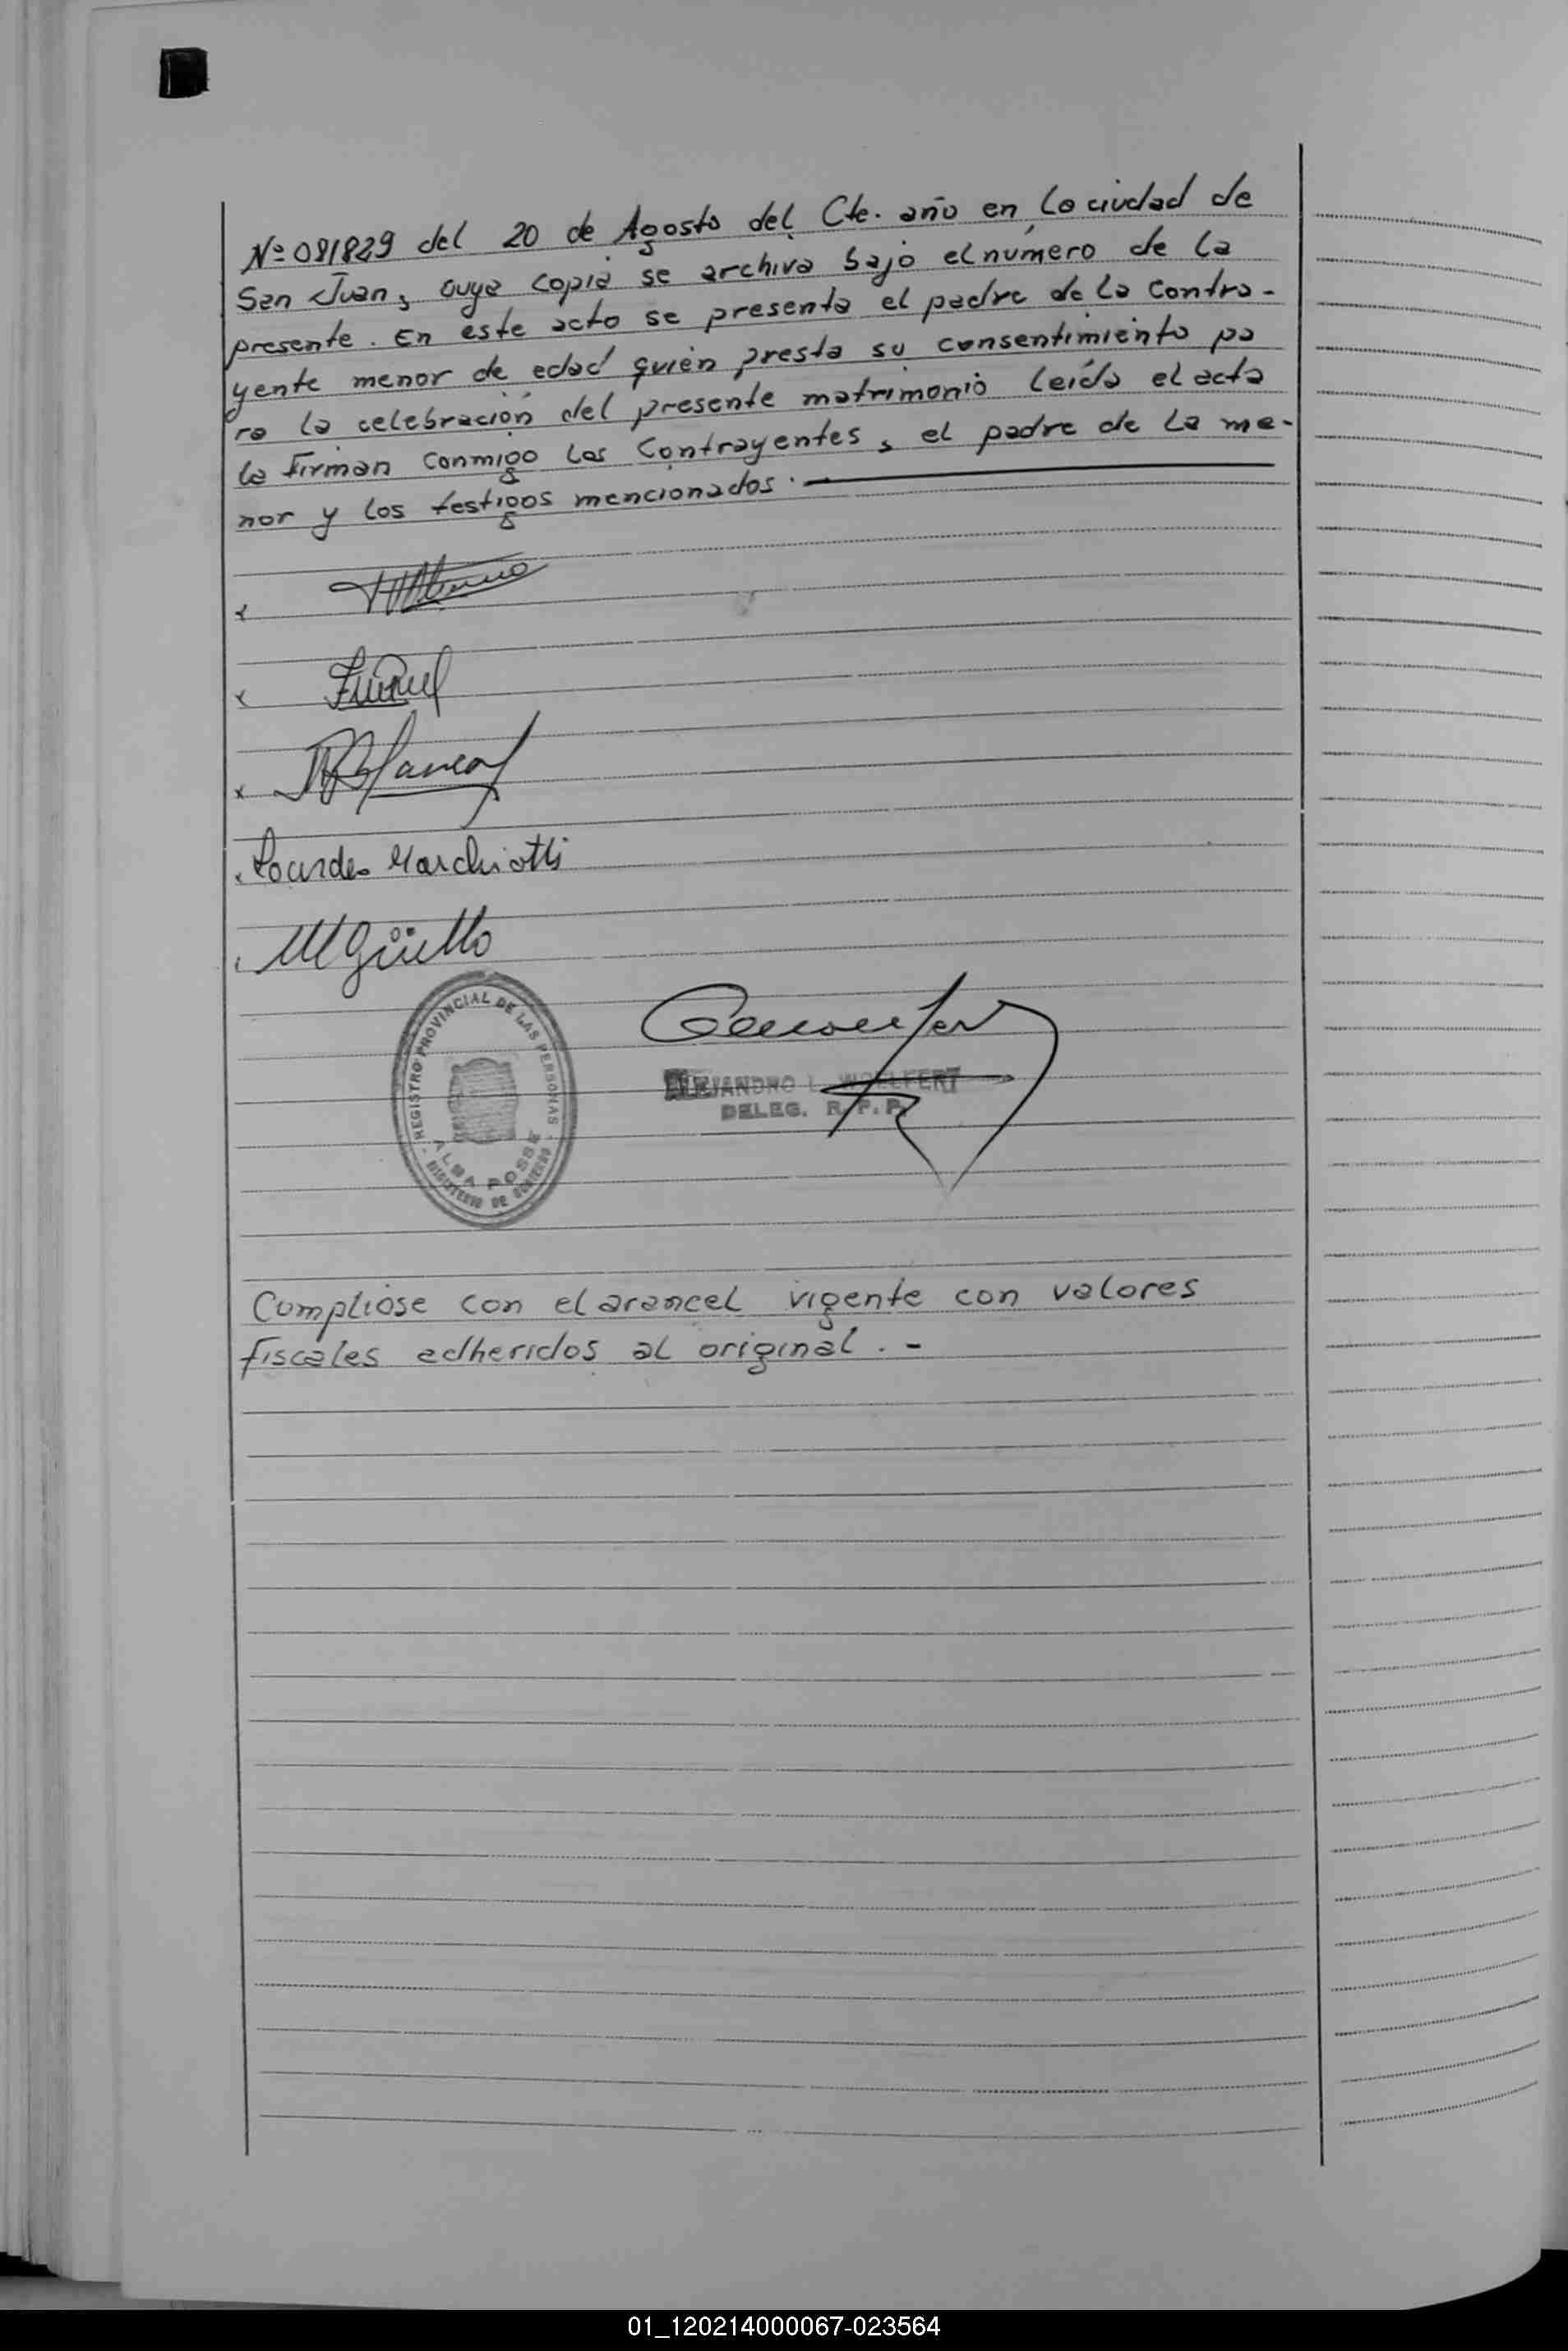 Nº 081829 del 20 de Agosto del Cte. año en la ciudad de
San Juan, cuya copia se archiva bajo el número de la
presente. En este acto se presenta el padre de la contra-
yente menor de edad quien presta su consentimiento pa
ra la celebración del presente matrimonio leída el acta
la firman conmigo los contrayentes, el padre de la me-
nor y los testigos mencionados.
Lourdes Marchiotti
MGüetto
REGISTRO PROVINCIAL DE LAS PERSONAS
ALBA POSSE
MINISTERIO DE GOBIERNO
ALEJANDRO L. WOELFERT
DELEG. R. P. P.
Cumplióse con el arancel vigente con valores
fiscales adheridos al original. -
01_120214000067-023564